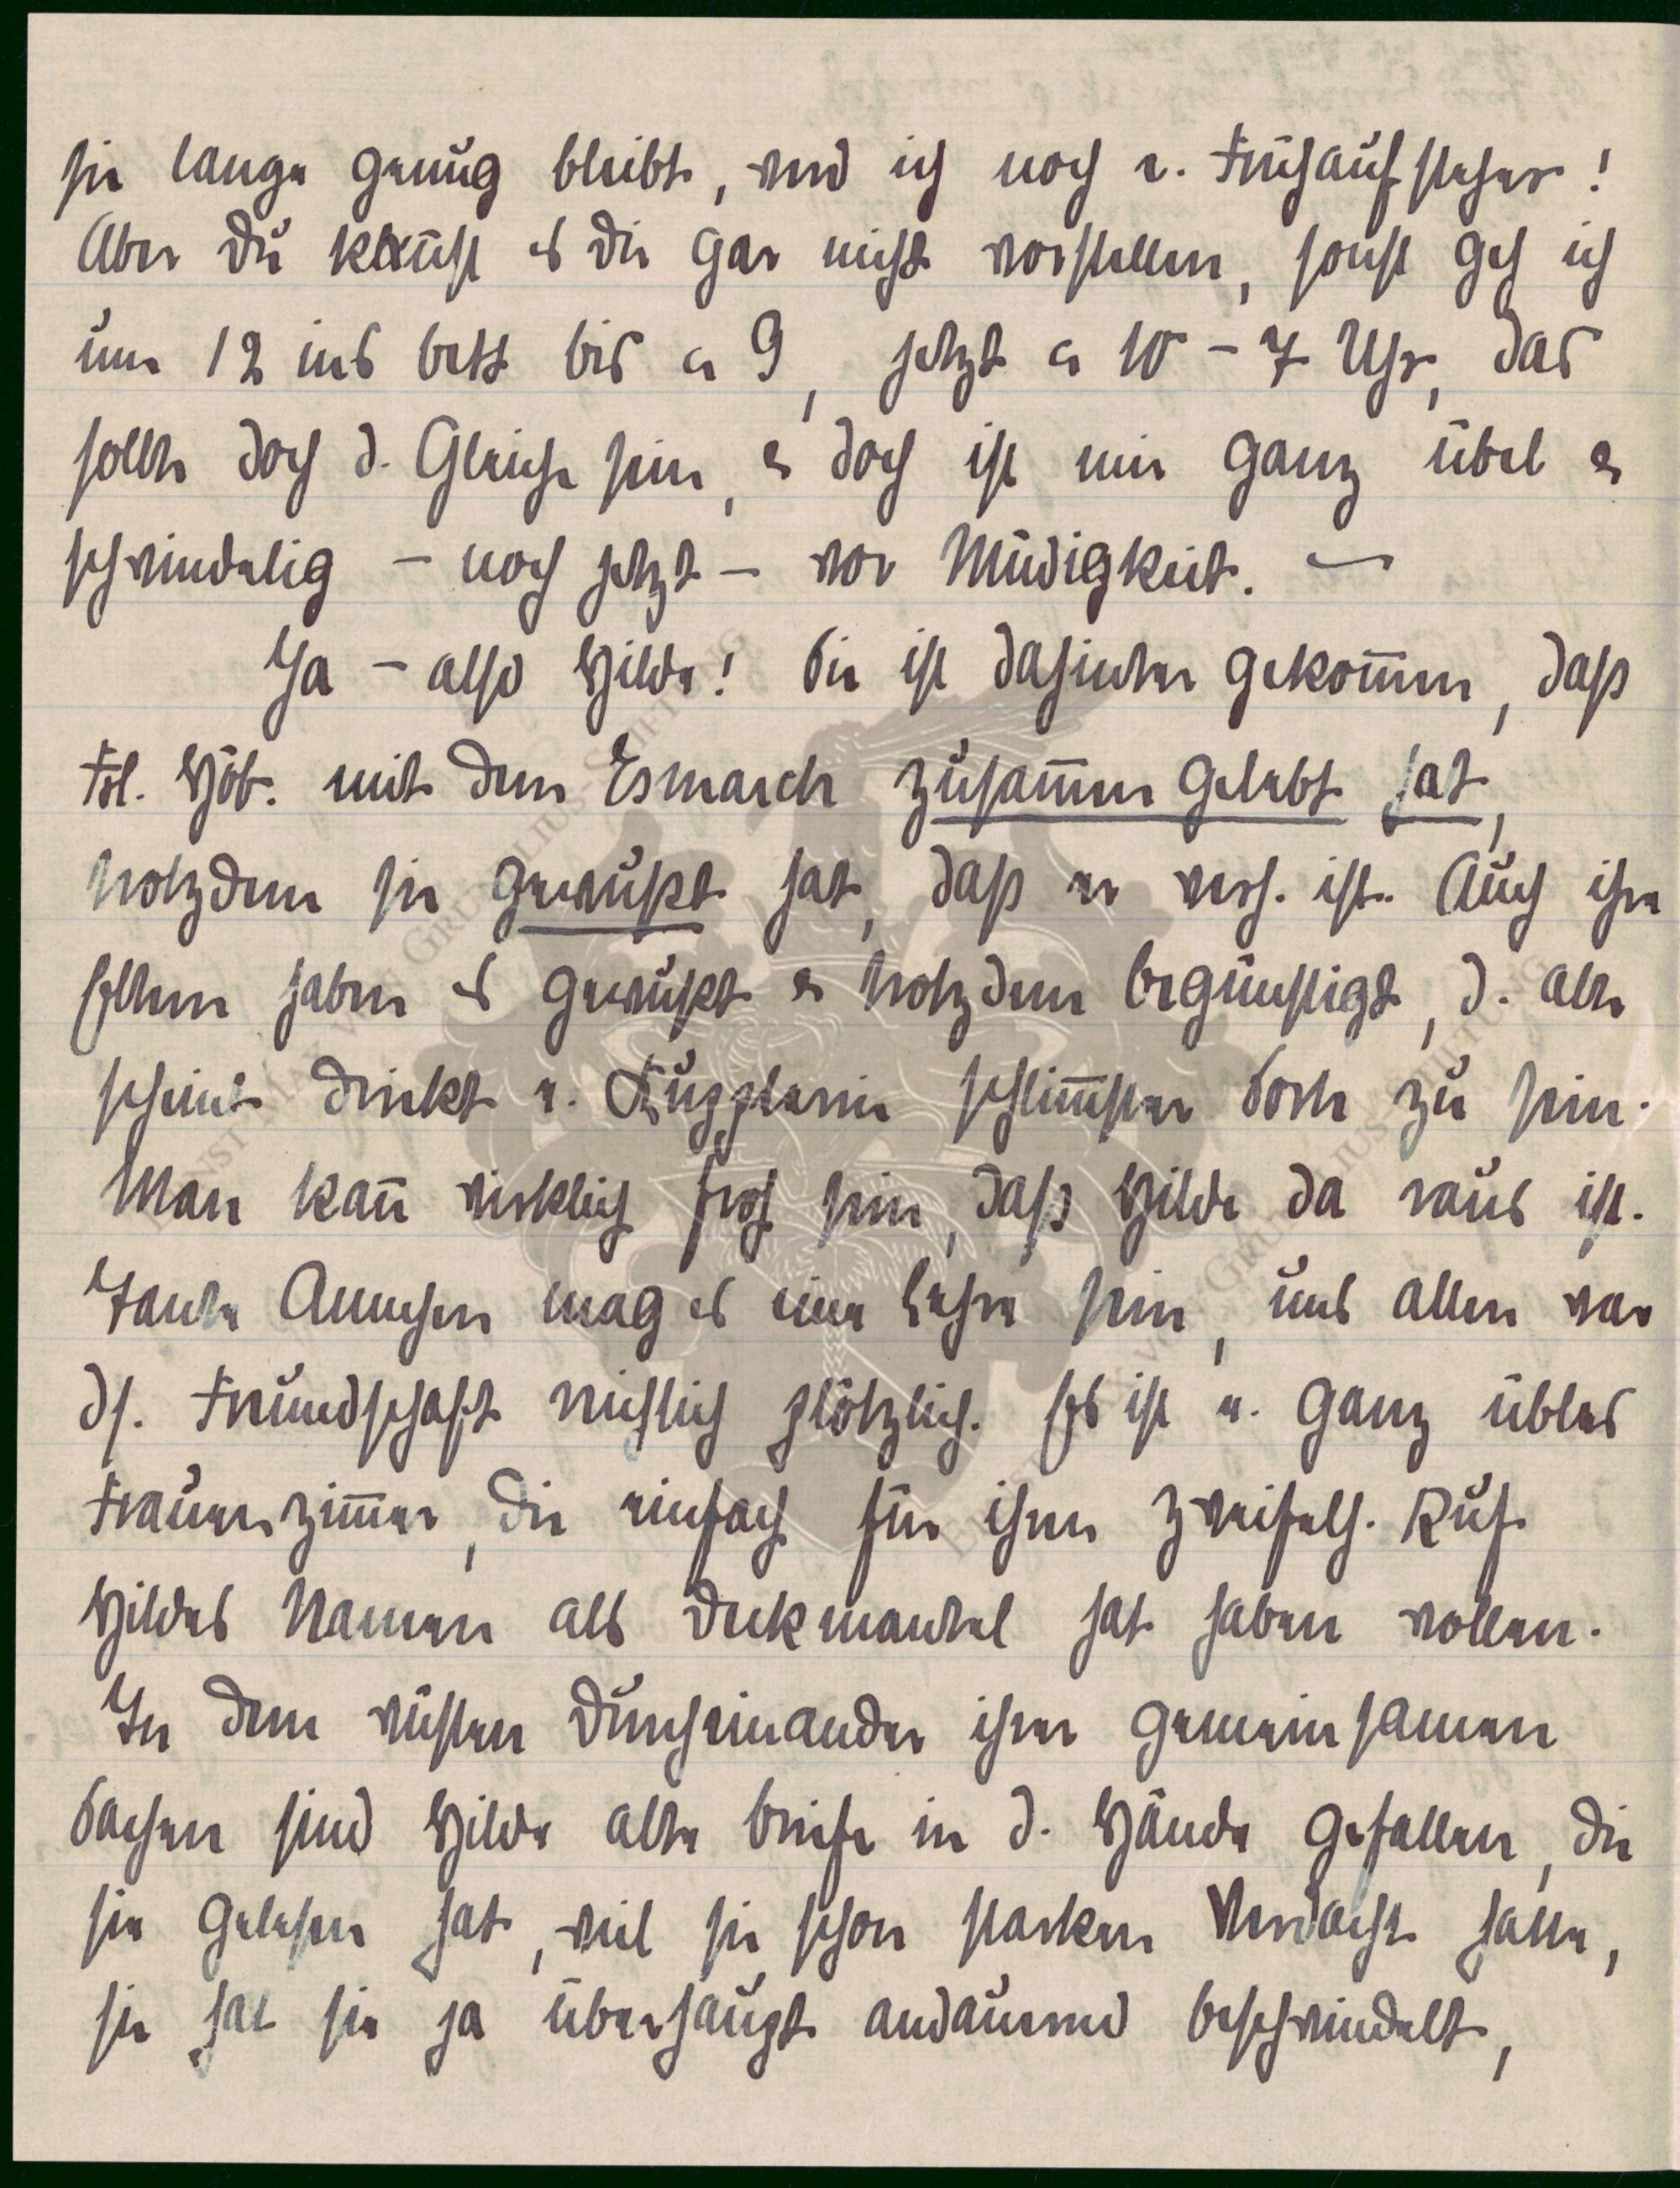 sie lange genug bleibt, und ich noch e. Frühaufsteher!
Aber Du kannst es Dir gar nicht vorstellen, sonst geh ich
um 12 ins Bett bis a 9, jetzt a 10 – 7 Uhr, das
sollte doch d. Gleiche sein, & doch ist mir ganz übel &
schwindelig – noch jetzt – vor Müdigkeit. –
Ja – also Hilde! Sie ist dahinter gekom̅en, daß
Frl. Höb. mit dem Esmarch zusam̅en gelebt hat,
trotzdem sie gewußt hat, daß er verh. ist. Auch ihre
Eltern haben es gewußt & trotzdem begünstigt, d. Alte
scheint direkt e. Kupplerin schlim̅ster Sorte zu sein.
Man kan̅ wirklich froh sein, daß Hilde da raus ist.
Tante Annchen mag es eine Lehre sein, uns allen war
ds. Freundschaft reichlich plötzlich. Es ist e. ganz übles
Frauenzim̅er, die einfach für ihren zweifelh. Ruf
Hildes Namen als Deckmantel hat haben wollen.
In dem wüsten Durcheinander ihrer gemeinsamen
Sachen sind Hilde alte Briefe in d. Hände gefallen, die
sie gelesen hat, weil sie schon starken Verdacht hatte,
sie hat sie ja überhaupt andauernd beschwindelt,